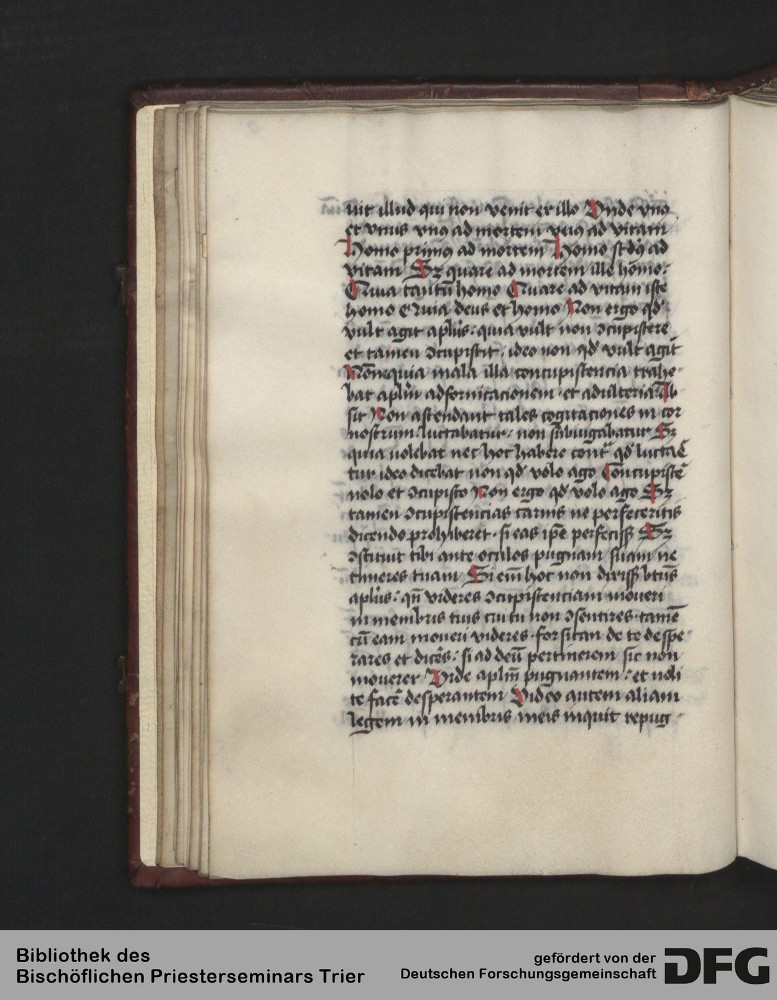 uit illud qui non venit ex illo Unde vnꝰ
et vnus vnꝰ ad mortem vnꝰ ad vitam
Homo primꝰ ad mortem Homo scd̓s ad
vitam Sꝫ quare ad mortem ille homo:
Quia tantū homo Quare ad vitam iste
homo Quia deus et homo Non ergo qd̓
vult agit apl̓us: quia vult non ↄcupiscere
et tamen ↄcupiscit: ideo non qd̓ vult agit
Nōnequia mala illa concupiscencia trahe
bat apl̓m ad fornicacionem et adulteria Ab
sit Non ascendant tales cogitaciones in cor
nostrum. luctabatur: non subiugabatur Sꝫ
quia nolebat nec hoc habere cont̓ qd̓ luctaē
tur ideo dicebat non qd̓ volo ago Concupiscē
nolo et ↄcupisco Non ergo qd̓ volo ago Sꝫ
tamen ↄcupiscencias carnis ne perfeceritis
dicendo prohiberet. si eas ip̄e perfecisꝫ Sꝫ
ↄstituit tibi ante oculos pugnam suam ne
timeres tuam Si em̄ hoc non dixisꝫ btūs
apl̓us: qn̄ videres ↄcupiscenciam moueri
in membris tuis cui tu non ↄsentires. tamē
cū eam moueri videres. forsitan de te despe
rares et dicēs: si ad deū pertinerem sic non
mouerer Vide apl̓m pugnantem: et noli
te facē desperantem Video autem aliam
legem in membris meis inquit repug
Bibliothek des
Bischöflichen Priesterseminars Trier
gefördert von der
Deutschen Forschungsgemeinschaft
DFG